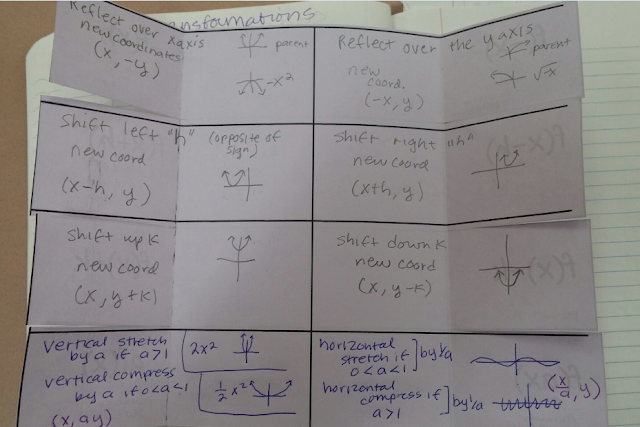 ansformations
Reflect over x axis
new coordinates
(x, -y)
parent
-x²
Reflect over the y axis
new
coord.
(-x, y)
parent
√-x
Shift left "h"
(opposite of
sign)
new coord
(x-h, y)
Shift right "h"
new coord
(x+h, y)
Shift up K
new coord
(x, y+K)
Shift down K
new coord
(x, y-K)
vertical stretch
by a if a>1
2x²
vertical compress
by a if 0<a<1
½ x²
(x, ay)
horizontal
stretch if
0<a<1
by 1/a
horizontal
compress if
a>1
by 1/a
(x/a, y)